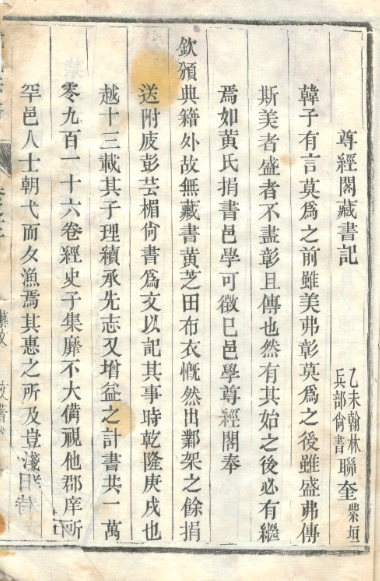 尊經閣藏書記
乙未翰林
兵部尚書
聯奎
紫垣
韓子有言莫爲之前雖美弗彰莫爲之後雖盛弗傳
斯美者盛者不盡彰且傳也然有其始之後必有繼
焉如黃氏捐書邑學可徵已邑學尊經閣奉
欽頒典籍外故無藏書黃芝田布衣慨然出鄴架之餘捐
送附庋彭芸楣尚書爲文以記其事時乾隆庚戌也
越十三載其子理續承先志又增益之計書共一萬
零九百一十六卷經史子集靡不大備視他郡庠所
罕邑人士朝弋而夕漁焉其惠之所及豈淺